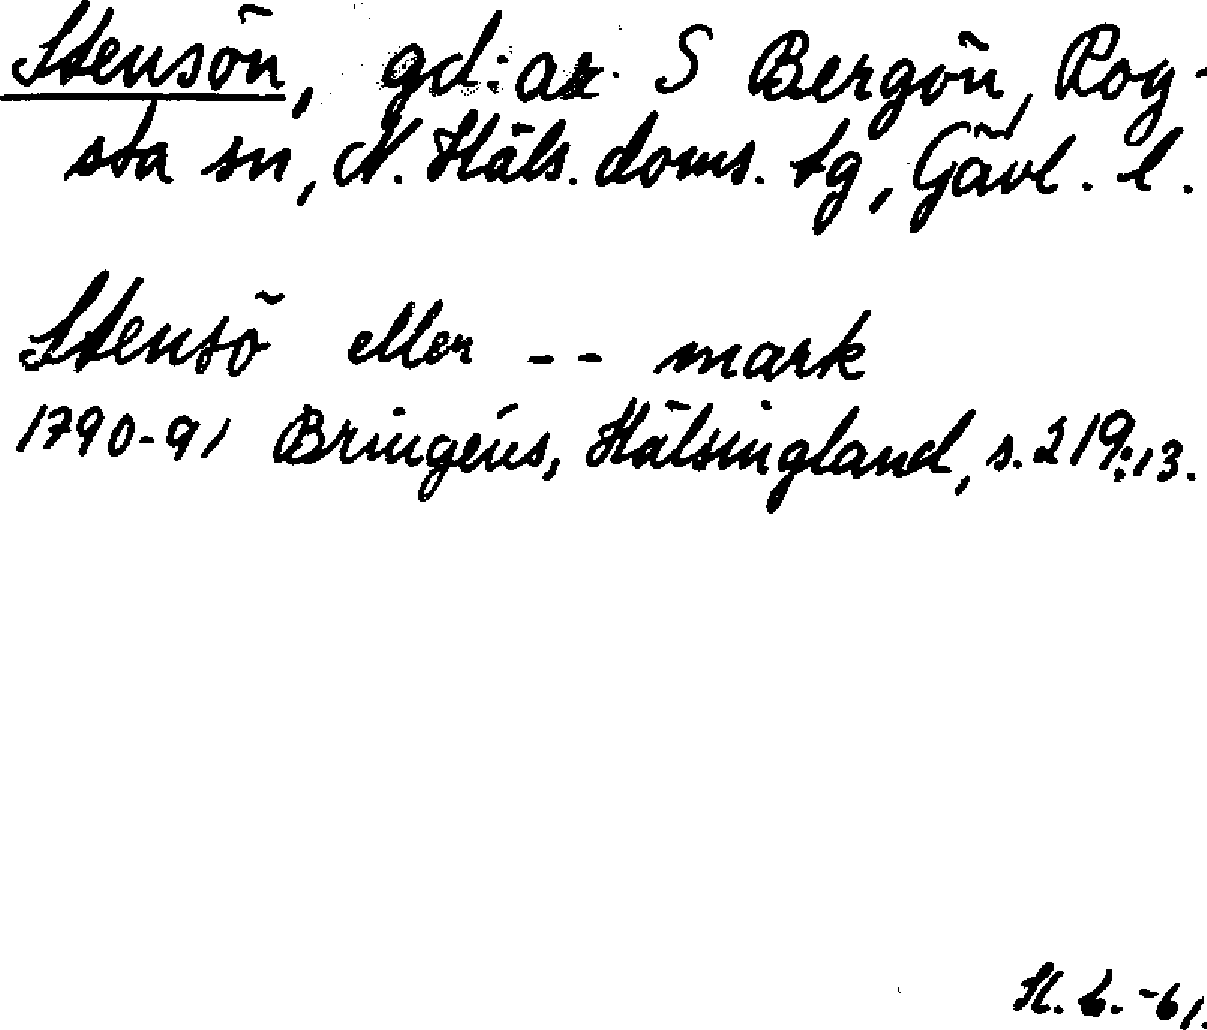 Stensön, gd:ar S Bergön, Rog-
sta sn, N. Häls. doms. tg, Gävl. l.
Stensö eller -- mark
1790-91 Bringéus, Hälsingland, s. 219:13.
H. L. -61.